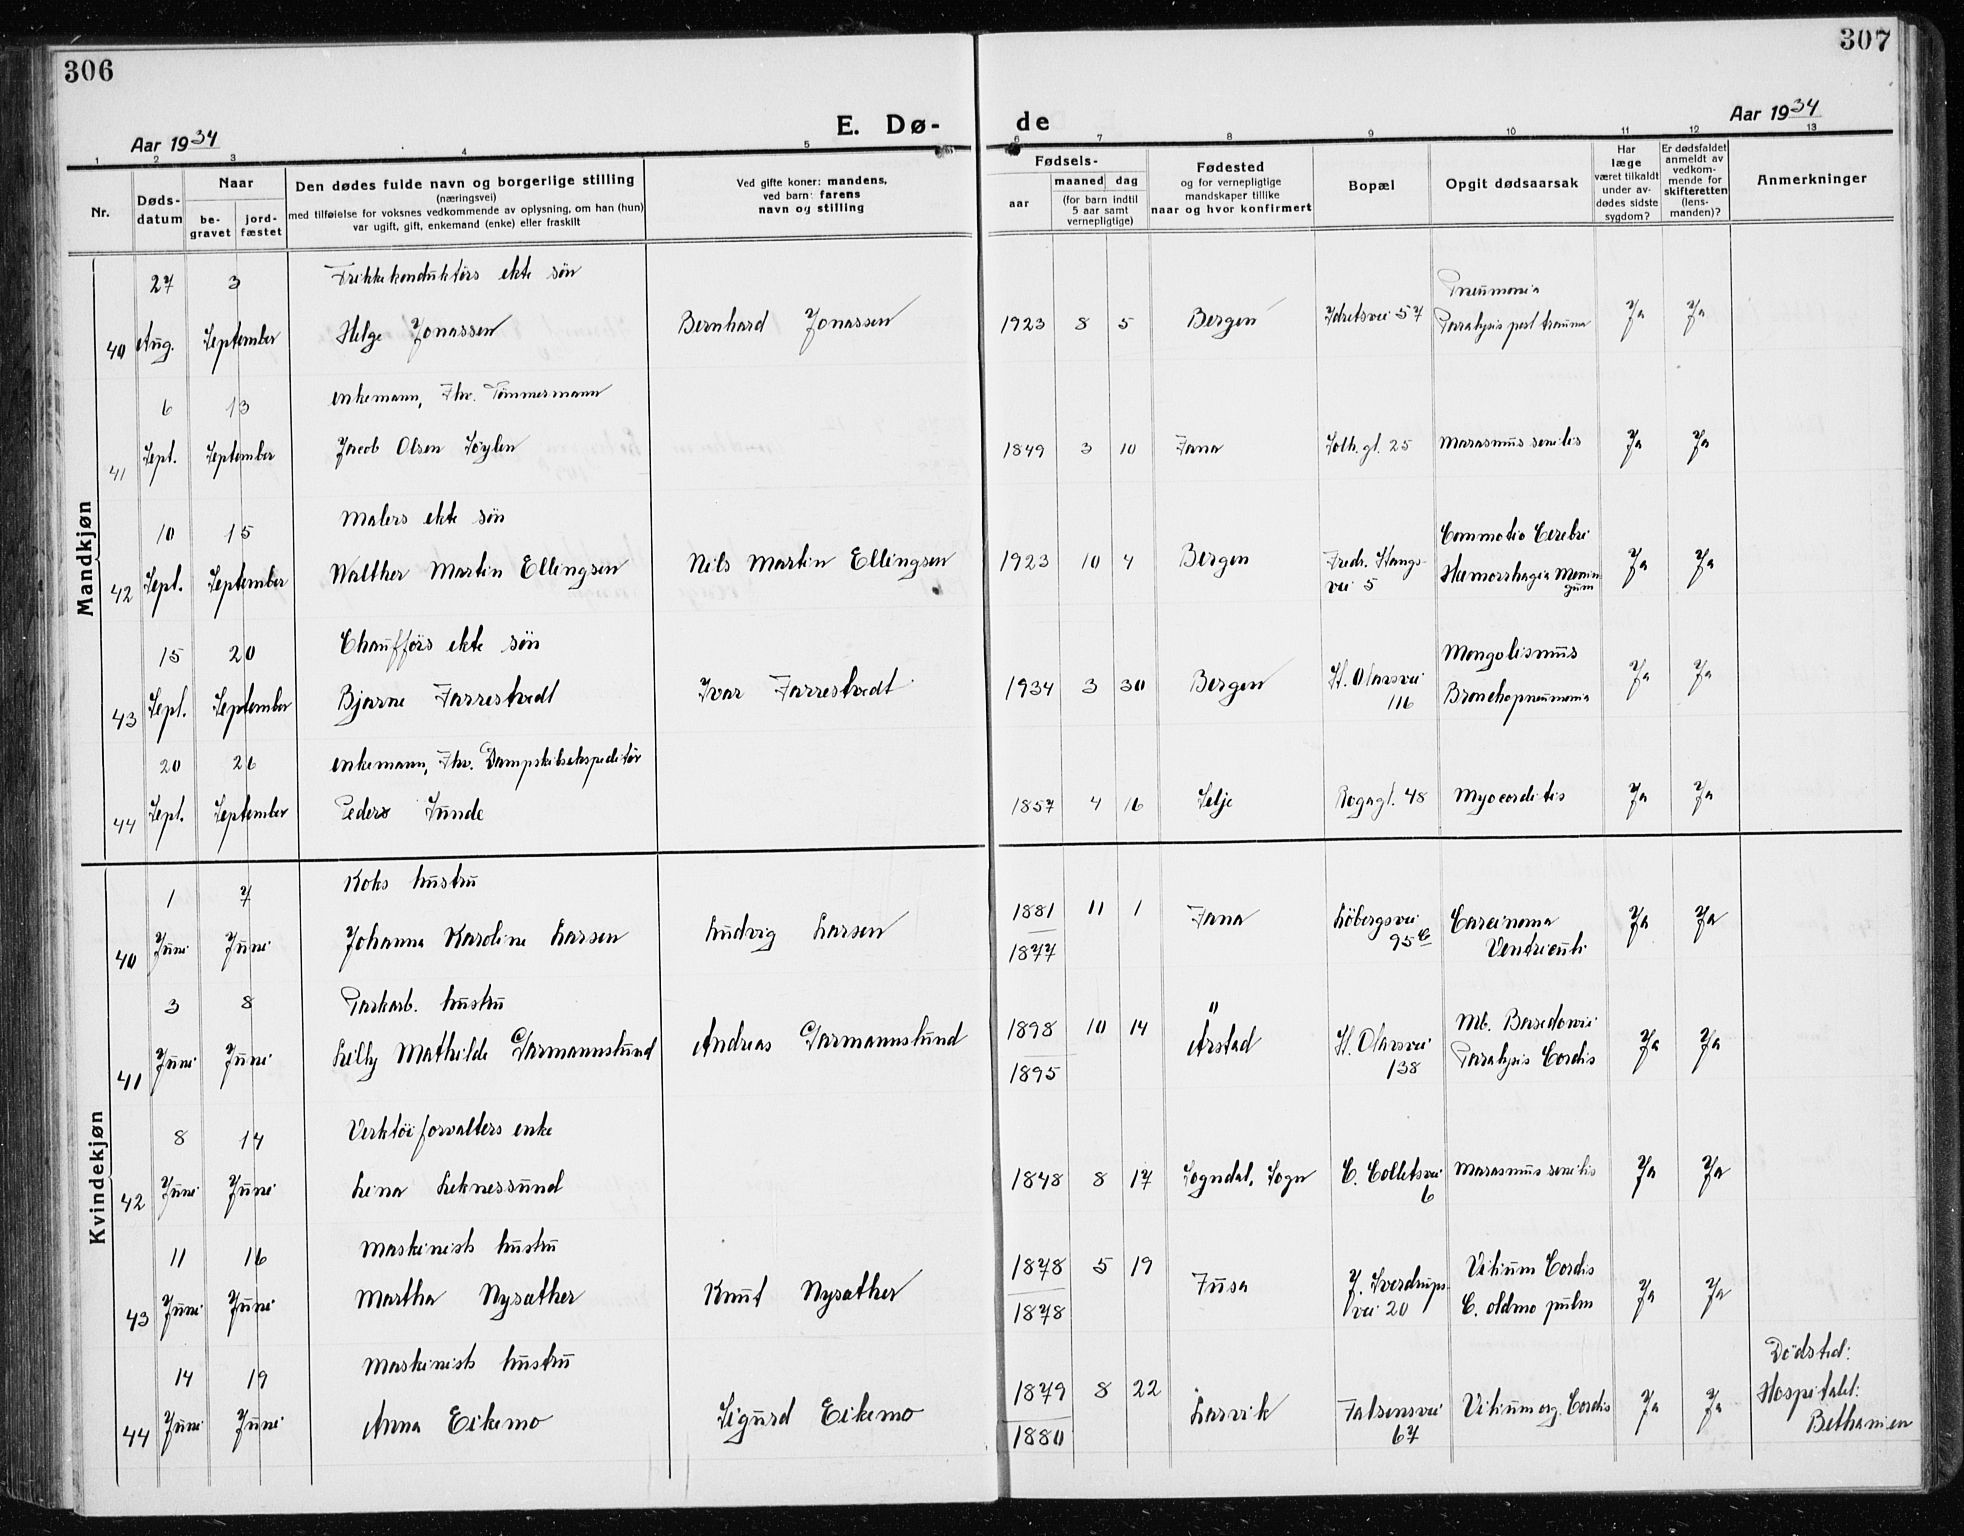 306
307
Aar 1934
E. Dø-
de
Aar 1934
1 2 3 4 5 6 7 8 9 10 11 12 13
Nr.
Døds-
datum
Naar
be-
gravet
jord-
fæstet
Den dødes fulde navn og borgerlige stilling
(næringsvei)
med tilføielse for voksnes vedkommende av oplysning, om han (hun)
var ugift, gift, enkemand (enke) eller fraskilt
Ved gifte koner: mandens,
ved barn: farens
navn og stilling
Fødsels-
aar
maaned dag
(for barn indtil
5 aar samt
vernepligtige)
Fødested
og for vernepligtige
mandskaper tillike
naar og hvor konfirmert
Bopæl
Opgit dødsaarsak
Har
læge
været tilkaldt
under av-
dødes sidste
sygdom?
Er dødsfaldet
anmeldt av
vedkom-
mende for
skifteretten
(lens-
manden)?
Anmerkninger
Mandkjøn
27 3 Trikkekonduktörs ekte sön Pneumonia
40 Aug. September Helge Jonassen Bernhard Jonassen 1923 8 5 Bergen Idretsvei 57 Paralysis post trauma Ja Ja
6 13 enkemann, Fhv. Tömmermann
41 Sept. September Jacob Olsen Söylen 1849 3 10 Fana Solh.gt. 25 Marasmus senilis Ja Ja
10 15 Malers ekte sön Commotio Cerebri
42 Sept. September Walther Martin Ellingsen Nils Martin Ellingsen 1923 10 4 Bergen Fredr. Stangs- Hæmorrhagia Menin Ja Ja
vei 5 gum
15 20 Chaufförs ekte sön Mongolismus
43 Sept. September Bjarne Farrestvedt Ivar Farrestvedt 1934 3 30 Bergen St. Olavsvei Bronchopneumonia Ja Ja
116
20 26 enkemann, Fhv. Dampskibsekspeditör
44 Sept. September Peder Sunde 1857 4 16 Selje Rogagt. 48 Myocarditis Ja Ja
Kvindekjøn
1 7 Koks hustru 1881 11 1
40 Juni Juni Johanna Karoline Larsen Ludvig Larsen Fana Löbergsvei Carcinoma Ja Ja
1877 95 c Ventriculi
3 8 Parkarb. hustru 1898 10 14 " Mb. Basedowii
41 Juni Juni Lilly Mathilde Garmannslund Andreas Garmannslund Årstad St. Olavsvei Paralysis Cordis Ja Ja
1895 138
8 14 Verktöiforvalters enke
42 Juni Juni Lina Leknessund 1848 8 17 Sogndal, Sogn C. Colletsvei Marasmus senilis Ja Ja
6
11 16 Maskinists hustru 1878 5 19 Vitium Cordis
43 Juni Juni Martha Nysæther Knut Nysæther Fusa J. Sverdrups- C. oldmo pulm Ja Ja
1878 vei 20
14 19 Maskinists hustru 1879 8 22 Dödsted:
44 Juni Juni Anna Eikemo Sigurd Eikemo Larvik Falsensvei Vitium org. Cordis Ja Ja Hospitalet:
1880 67 Bethanien